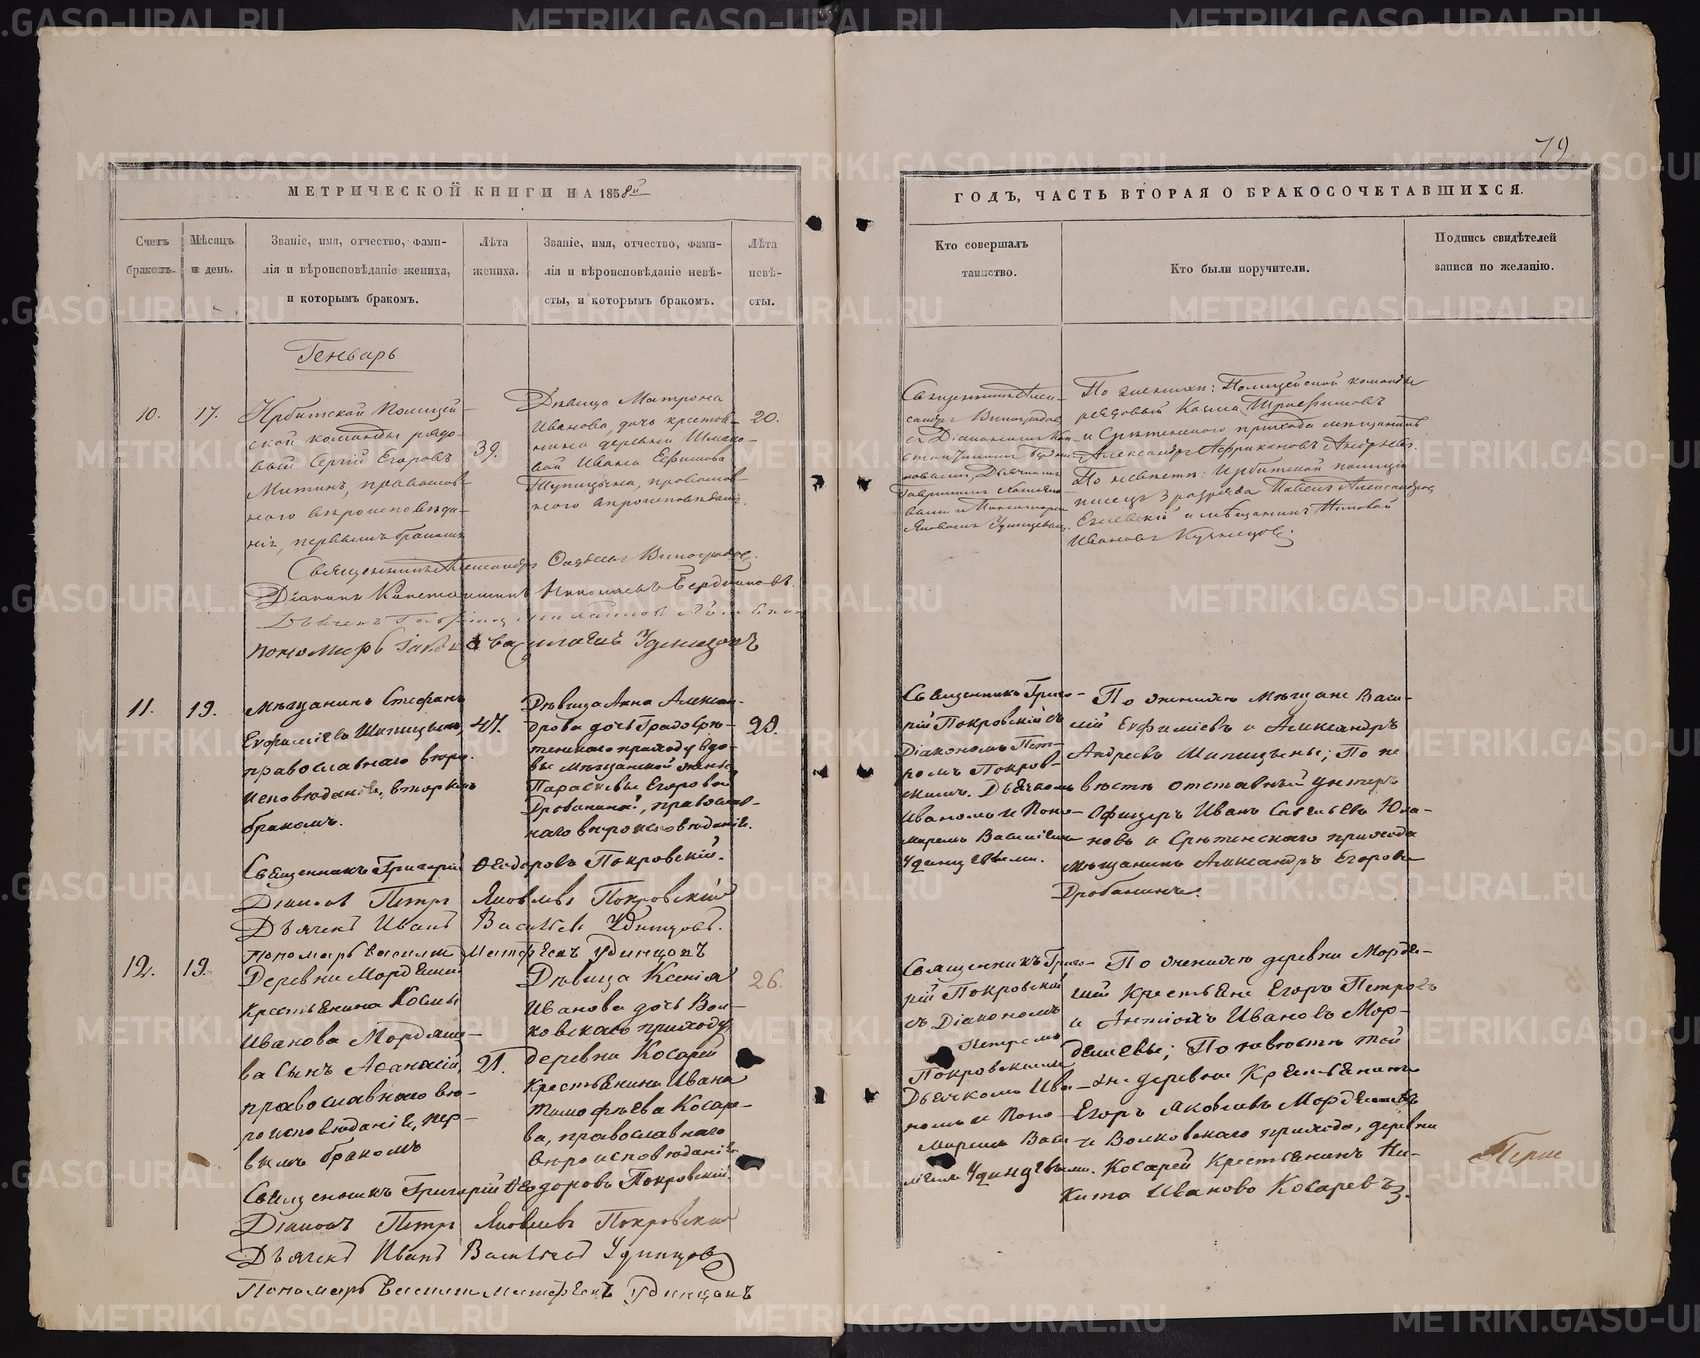 79.
МЕТРИЧЕСКОЙ КНИГИ НА 1858й
Счетъ браковъ.
Мѣсяцъ и день.
Званіе, имя, отчество, фами-
лія и вѣроисповѣданіе жениха,
и которымъ бракомъ.
Лѣта жениха.
Званіе, имя, отчество, фами-
лія и вѣроисповѣданіе невѣ-
сты, и которымъ бракомъ.
Лѣта невѣ-
сты.
Генварь
10.
17.
Ирбитской Полицей-
ской команды рядо-
вый Сергій Егоровъ
Митинъ, православ-
наго вѣроисповѣда-
нія, первымъ бракомъ
39.
Дѣвица Матрона
Иванова, дочь крестья-
нина деревни
вой Ивана Ефимова
православ-
наго вѣроисповѣданія.
20.
Священникъ Александръ Виноградовъ.
Діаконъ Константинъ Николаевъ Бердниковъ.
Пономарь Удинцовъ
11.
19.
Мѣщанинъ Стефанъ
Евфиміевъ Шипицынъ,
православнаго вѣро-
исповѣданія, вторымъ
бракомъ.
47.
Дѣвица Анна Алексан-
дрова дочь Градо Срѣ-
тенскаго приходу вдо-
вы мѣщанской жены
Параскевы Егоровой
Дробинина, православ-
наго вѣроисповѣданія.
20.
Священникъ Григорій Ѳеодоровъ Покровскій.
Діаконъ Петръ Яковлевъ Покровскій
Дьячекъ Иванъ Васильевъ Удинцовъ.
Пономарь Василій Матфеевъ Удинцовъ
12.
19.
Деревни Мордяшихи
Крестьянина Космы
Иванова Мордяше-
ва сынъ Аѳанасій,
православнаго вѣ-
роисповѣданія, пер-
вымъ бракомъ
21.
Дѣвица Ксенія
Иванова дочь Вол-
ковскаго приходу
деревни Косарей
Крестьянина Ивана
Тимофѣева Косаре-
ва, православнаго
вѣроисповѣданія
26.
Священникъ Григорій Ѳеодоровъ Покровскій.
Діаконъ Петръ Яковлевъ Покровскій
Дьячекъ Иванъ Васильевъ Удинцовъ
Пономарь Василій Матфеевъ Удинцовъ
ГОДЪ, ЧАСТЬ ВТОРАЯ О БРАКОСОЧЕТАВШИХСЯ.
Кто совершалъ
таинство.
Кто были поручители.
Подпись свидѣтелей
записи по желанію.
Священникъ Алек-
сандръ Виноградовъ
съ Діакономъ Кон-
стантиномъ Бердни-
ковымъ, Дьячкомъ
Гавріиломъ
и Пономаремъ
Яковомъ Удинцевымъ.
По женихѣ: Полицейской команды
рядовый Косма Трофимовъ
и Срѣтенскаго прихода мѣщанинъ
Александръ Африкановъ
По невѣстѣ: Ирбитской полиціи
писецъ 3 разряда Павелъ Александровъ
и мѣщанинъ
Ивановъ Кузнецовъ.
Священникъ Григо-
рій Покровскій съ
Діакономъ Пет-
ромъ Покров-
скимъ. Дьячкомъ
Иваномъ и Поно-
маремъ Василіемъ
Удинцевыми.
По женихѣ Мѣщане Васи-
лій Евфиміевъ и Александръ
Андреевъ Шипицыны; По не
вѣстѣ отставный унтеръ
Офицеръ Иванъ Савельевъ Юла-
новъ и Срѣтенскаго прихода
мѣщанинъ Александръ Егоровъ
Дробининъ.
Священникъ Григо-
рій Покровскій
съ Діакономъ
Петромъ
Покровскимъ
Дьячкомъ Ива-
номъ и Поно-
маремъ Васи-
ліемъ Удинцевыми.
По женихѣ деревни Мордя-
шихи Крестьяне Егоръ Петровъ
и Антіохъ Ивановъ Мор-
дяшевы; По невѣстѣ той
же деревни Крестьянинъ
Егоръ Яковлевъ Мордяшевъ
и Волковскаго прихода, деревни
Косарей Крестьянинъ Ни-
кита Ивановъ Косаревъ.
METRIKI.GASO-URAL.RU